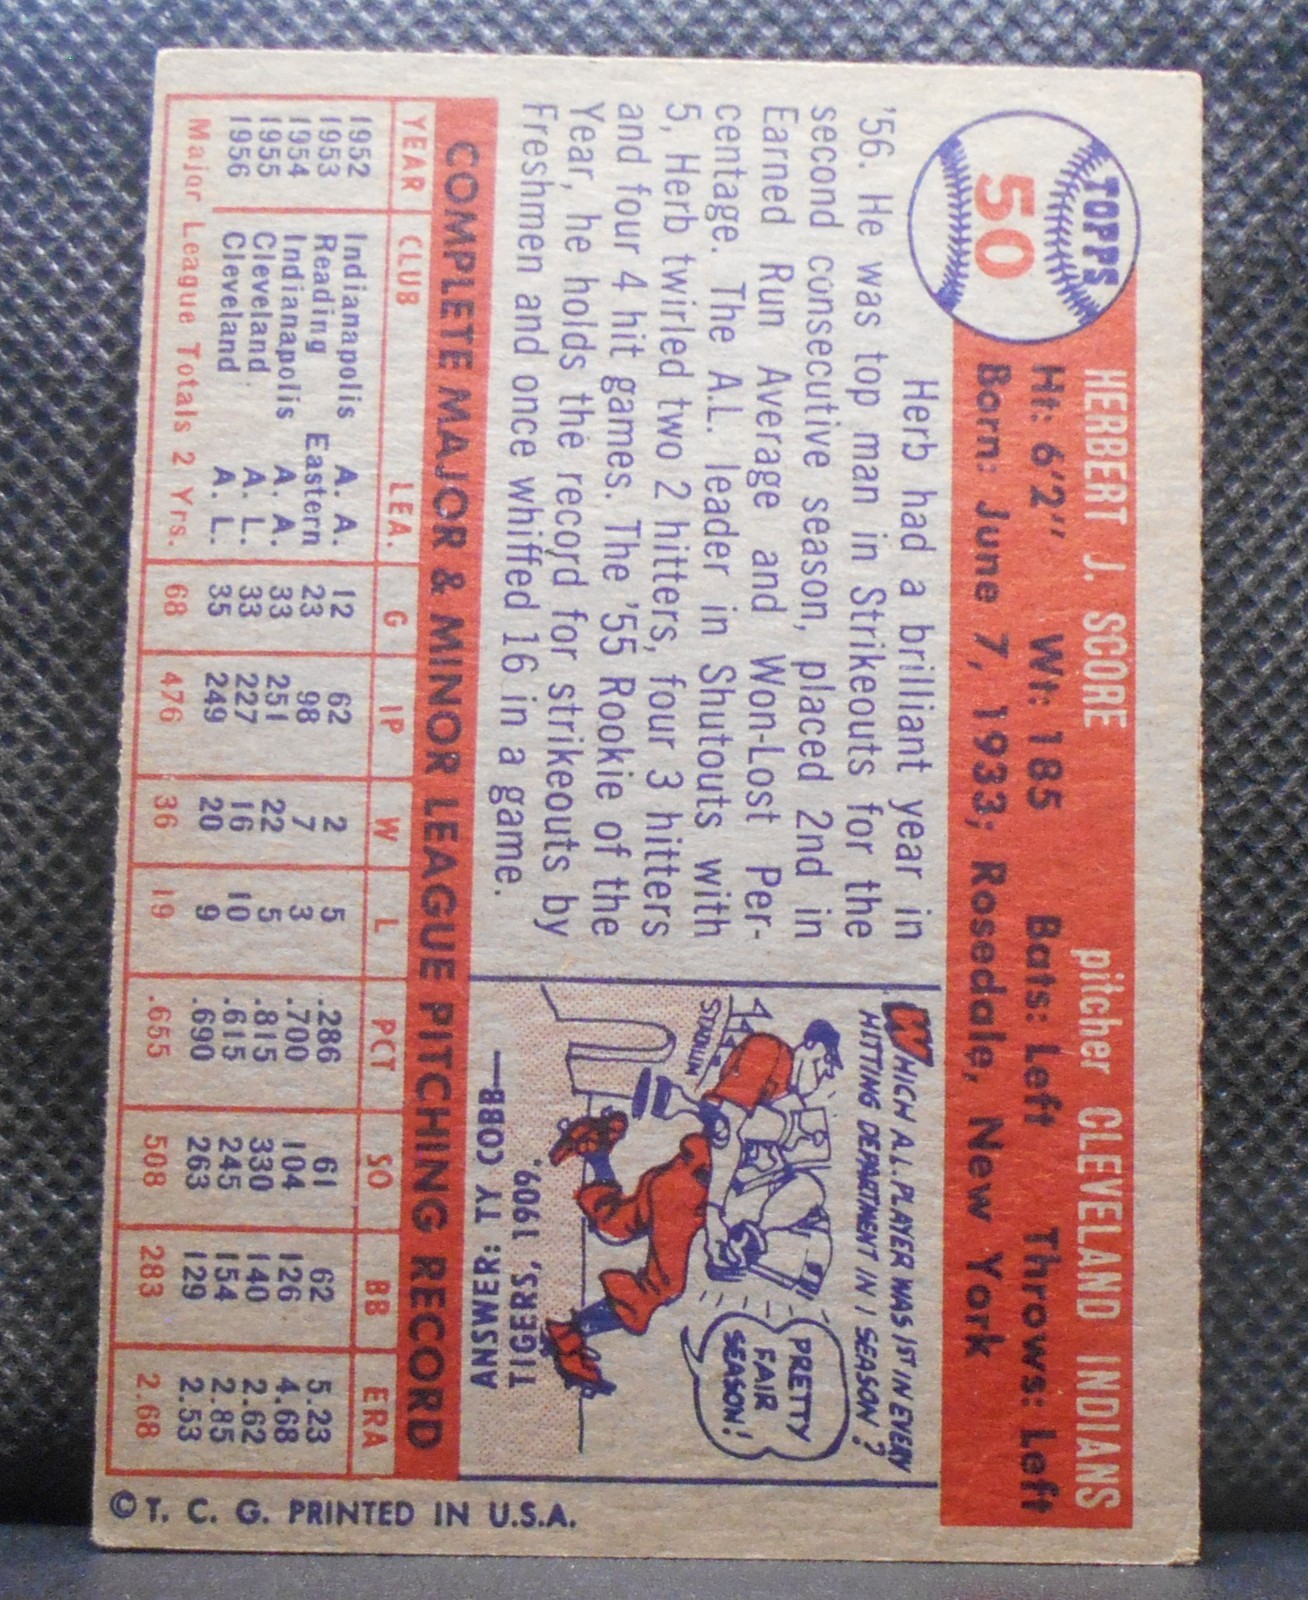 TOPPS
50
HERBERT J. SCORE pitcher CLEVELAND INDIANS
Ht: 6'2" Wt: 185 Bats: Left Throws: Left
Born: June 7, 1933; Rosedale, New York
Herb had a brilliant year in
'56. He was top man in Strikeouts for the
second consecutive season, placed 2nd in
Earned Run Average and Won-Lost Per-
centage. The A.L. leader in Shutouts with
5, Herb twirled two 2 hitters, four 3 hitters
and four 4 hit games. The '55 Rookie of the
Year, he holds the record for strikeouts by
Freshmen and once whiffed 16 in a game.
WHICH A.L. PLAYER WAS 1ST IN EVERY
HITTING DEPARTMENT IN 1 SEASON?
PRETTY
FAIR
SEASON!
STADIUM
ANSWER: TY COBB—
TIGERS, 1909.
COMPLETE MAJOR & MINOR LEAGUE PITCHING RECORD
YEAR CLUB LEA. G IP W L PCT SO BB ERA
1952 Indianapolis A. A. 12 62 2 5 .286 61 62 5.23
1953 Reading Eastern 23 98 7 3 .700 104 126 4.68
1954 Indianapolis A. A. 33 251 22 5 .815 330 140 2.62
1955 Cleveland A. L. 33 227 16 10 .615 245 154 2.85
1956 Cleveland A. L. 35 249 20 9 .690 263 129 2.53
Major League Totals 2 Yrs. 68 476 36 19 .655 508 283 2.68
© T. C. G. PRINTED IN U.S.A.